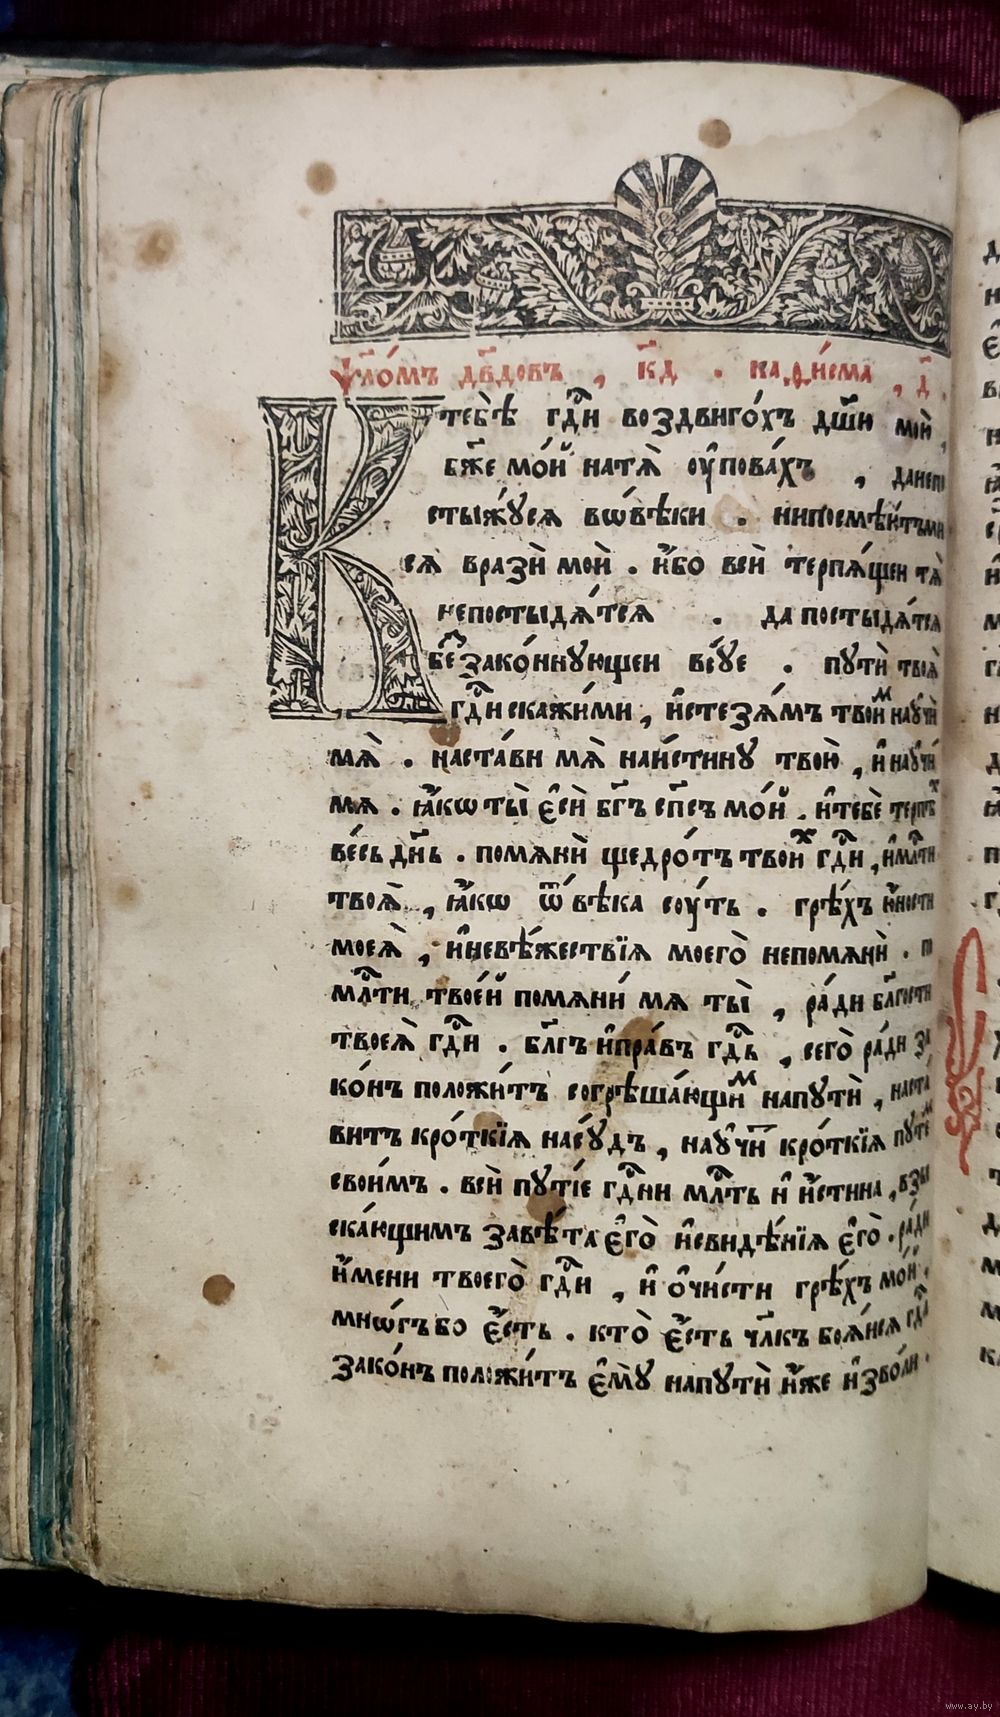 Ѱало́мъ дв҃довъ , к҃д . каѳи́сма , д҃ .
К тебѣ̀ гдⷭ҇и воздвиго́хъ дш҃ѹ мою̀ ,
бж҃е мо́й натѧ̀ оу҆пова́хъ , данепо
стыжу́сѧ вѡвѣ́ки . нипосмѣю́тъмни
сѧ вразѝ моѝ . и҆́бо всѝ терпѧ́щеи тѧ̀
непостыдѧ́тсѧ . да постыдѧ́тсѧ
беⷥзако́ннующеи всу́е . пути̑ твоѧ̀
гдⷭ҇и скажи́ми , и҆стезѧ́мъ твои̑ⷨ научи́
мѧ̀ . наста́ви мѧ̀ наи́стину твою̀ , и҆ научи́
мѧ . ꙗ҆́кѡ ты̀ є҆сѝ бг҃ъ сп҃съ мо́й . и҆тебѐ терпѣⷯ
ве́сь дн҃ь . помѧнѝ щедро́тъ твоиⷯ гдⷭ҇и , и҆млⷭ҇ти
твоѧ̀ , ꙗ҆́кѡ ѿвѣ́ка соу́ть . грѣ́хъ ю҆́ности
моеѧ̀ , и҆невѣ́жествїѧ моего̀ непомѧнѝ . по
млⷭ҇ти твое́й помѧни́ мѧ ты̀ , ра́ди бл҃гости
твоеѧ̀ гдⷭ҇и . бл҃гъ и҆пра́въ гдⷭ҇ь , сего̀ ра́ди за
ко́нъ положи́тъ согрѣша́ющиⷨ напутѝ , наста́
витъ кро́ткїѧ насу́дъ , научи́т кро́ткїѧ путе́ⷨ
свои́мъ . всѝ путїе́ гдⷭ҇ни млⷭ҇ть и҆ и҆́стина , взы
ска́ющимъ завѣ́та є҆го̀ и҆свидѣ́нїѧ є҆го̀ . ра́ди
и҆́мени твоего̀ гдⷭ҇и , и҆ ѡ҆чи́сти грѣ́хъ мо́й ,
мно́гъбо є҆́сть . кто̀ є҆́сть чл҃къ боѧ́исѧ гдⷭ҇а
зако́нъ положи́тъ є҆му̀ напутѝ и҆́же и҆зво́ли .
www.ay.by